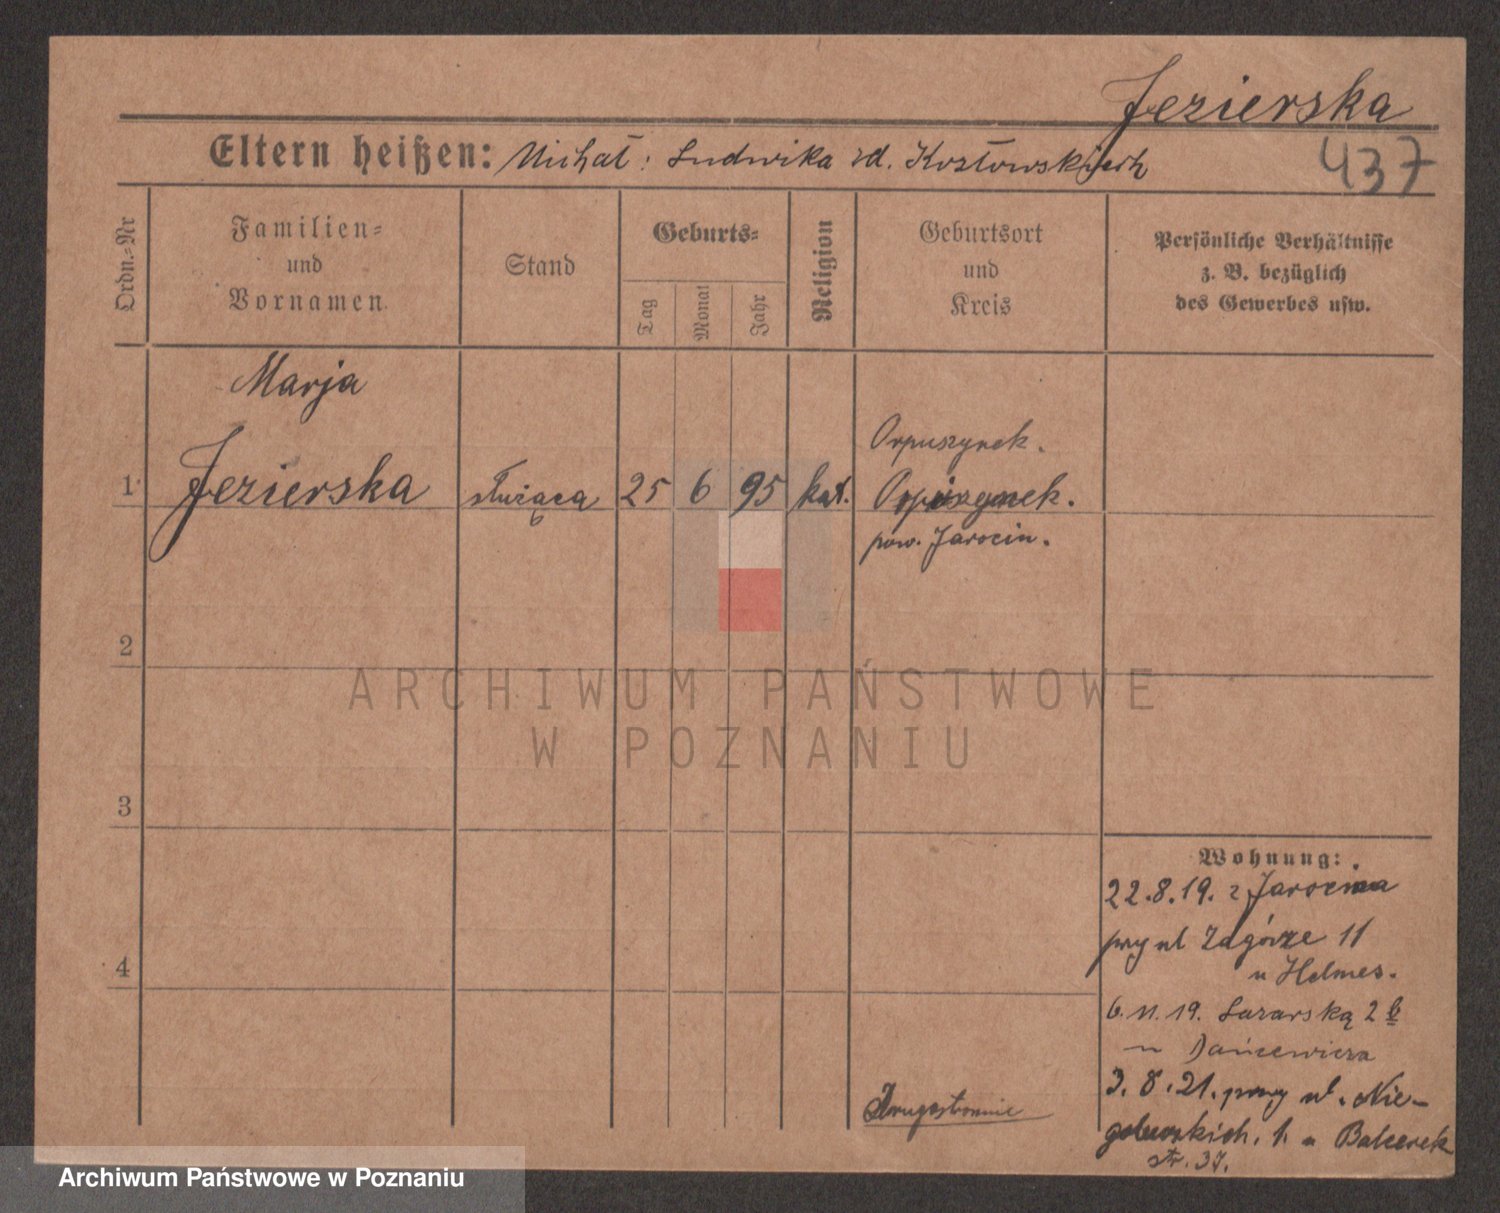 Jezierska
Eltern heißen: Michał: Ludwika zd. Kozłowskich
437
Ordn.-Nr
Familien-
und
Vornamen.
Stand
Geburts-
Tag
Monat
Jahr
Religion
Geburtsort
und
Kreis
Persönliche Verhältnisse
z. B. bezüglich
des Gewerbes usw.
Marja
1 Jezierska służąca 25 6 95 kat.
Orpuszynek.
pow. Jarocin.
2
3
4
ARCHIWUM PAŃSTWOWE
W POZNANIU
Wohnung:
22.8.19. z Jarocina
przy ul Zagórze 11
u Helmes.
6.11.19. Łazarską 2 b
u Dańcewicza
3.8.21. przy ul. Nie-
golewskich, 1. u Balcerek
str. 37.
Drugostronnie
Archiwum Państwowe w Poznaniu